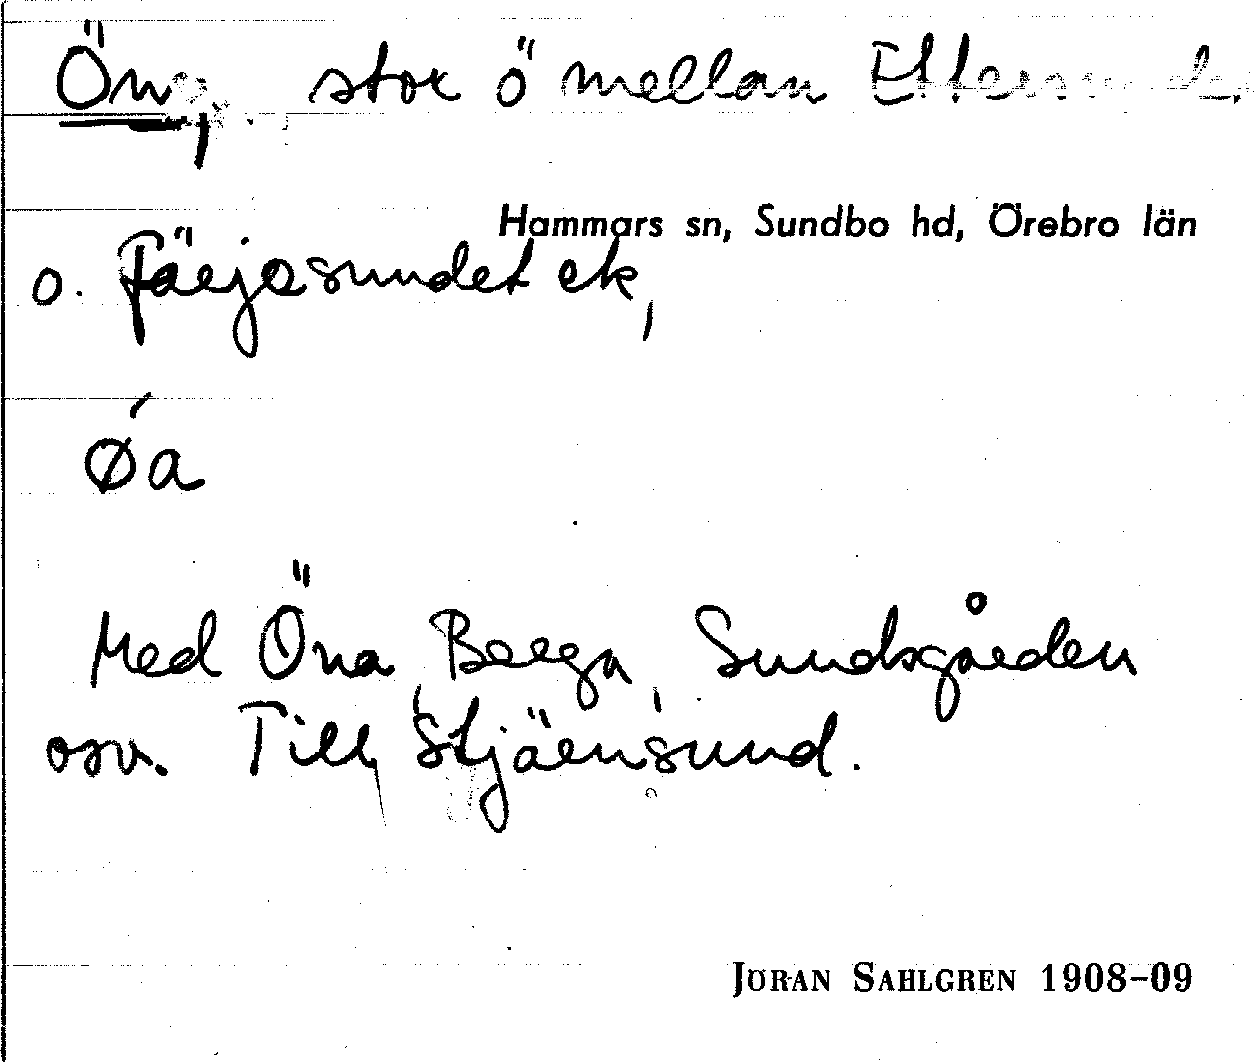 Öna, stor ö mellan
Hammars sn, Sundbo hd, Örebro län
o. Färjasundet ek,
øa
Med Öna, Berga, Sundsgården
osv. Till Stjärnsund.
JÖRAN SAHLGREN 1908–09